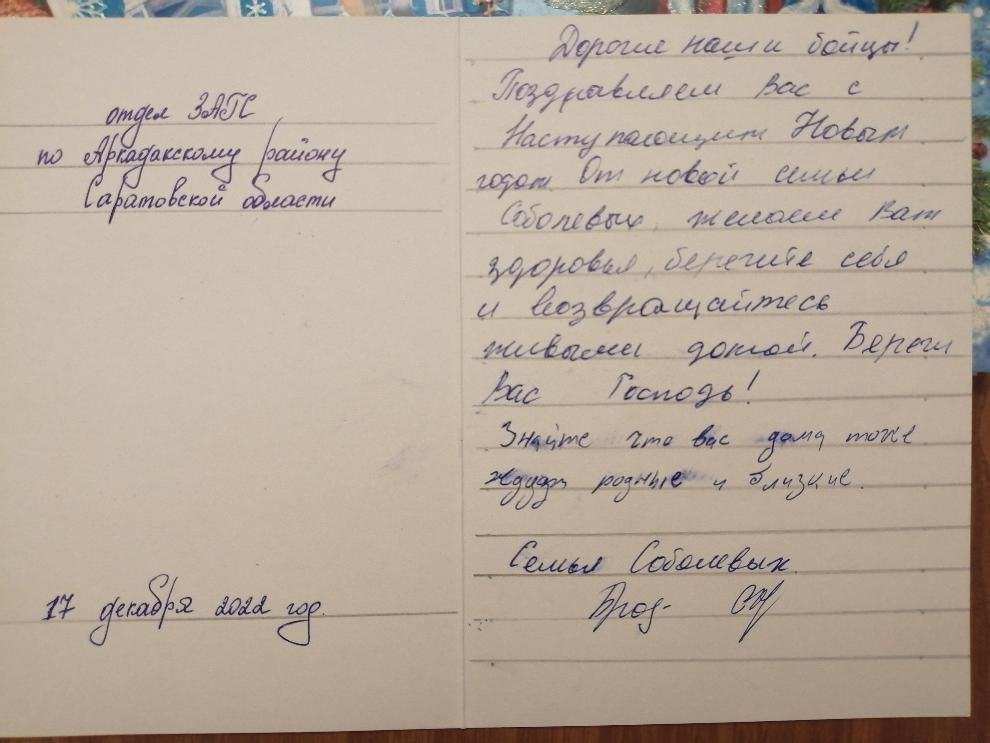 отдел ЗАГС
по Аркадакскому району
Саратовской области
17 декабря 2022 год.
Дорогие наши бойцы!
Поздравляем Вас с
Наступающим Новым
годом От новой семьи
Соболевых, желаем Вам
здоровья, берегите себя
и возвращайтесь
живыми домой. Береги
Вас Господь!
Знайте что вас дома тоже
ждут родные и близкие.
Семья Соболевых.